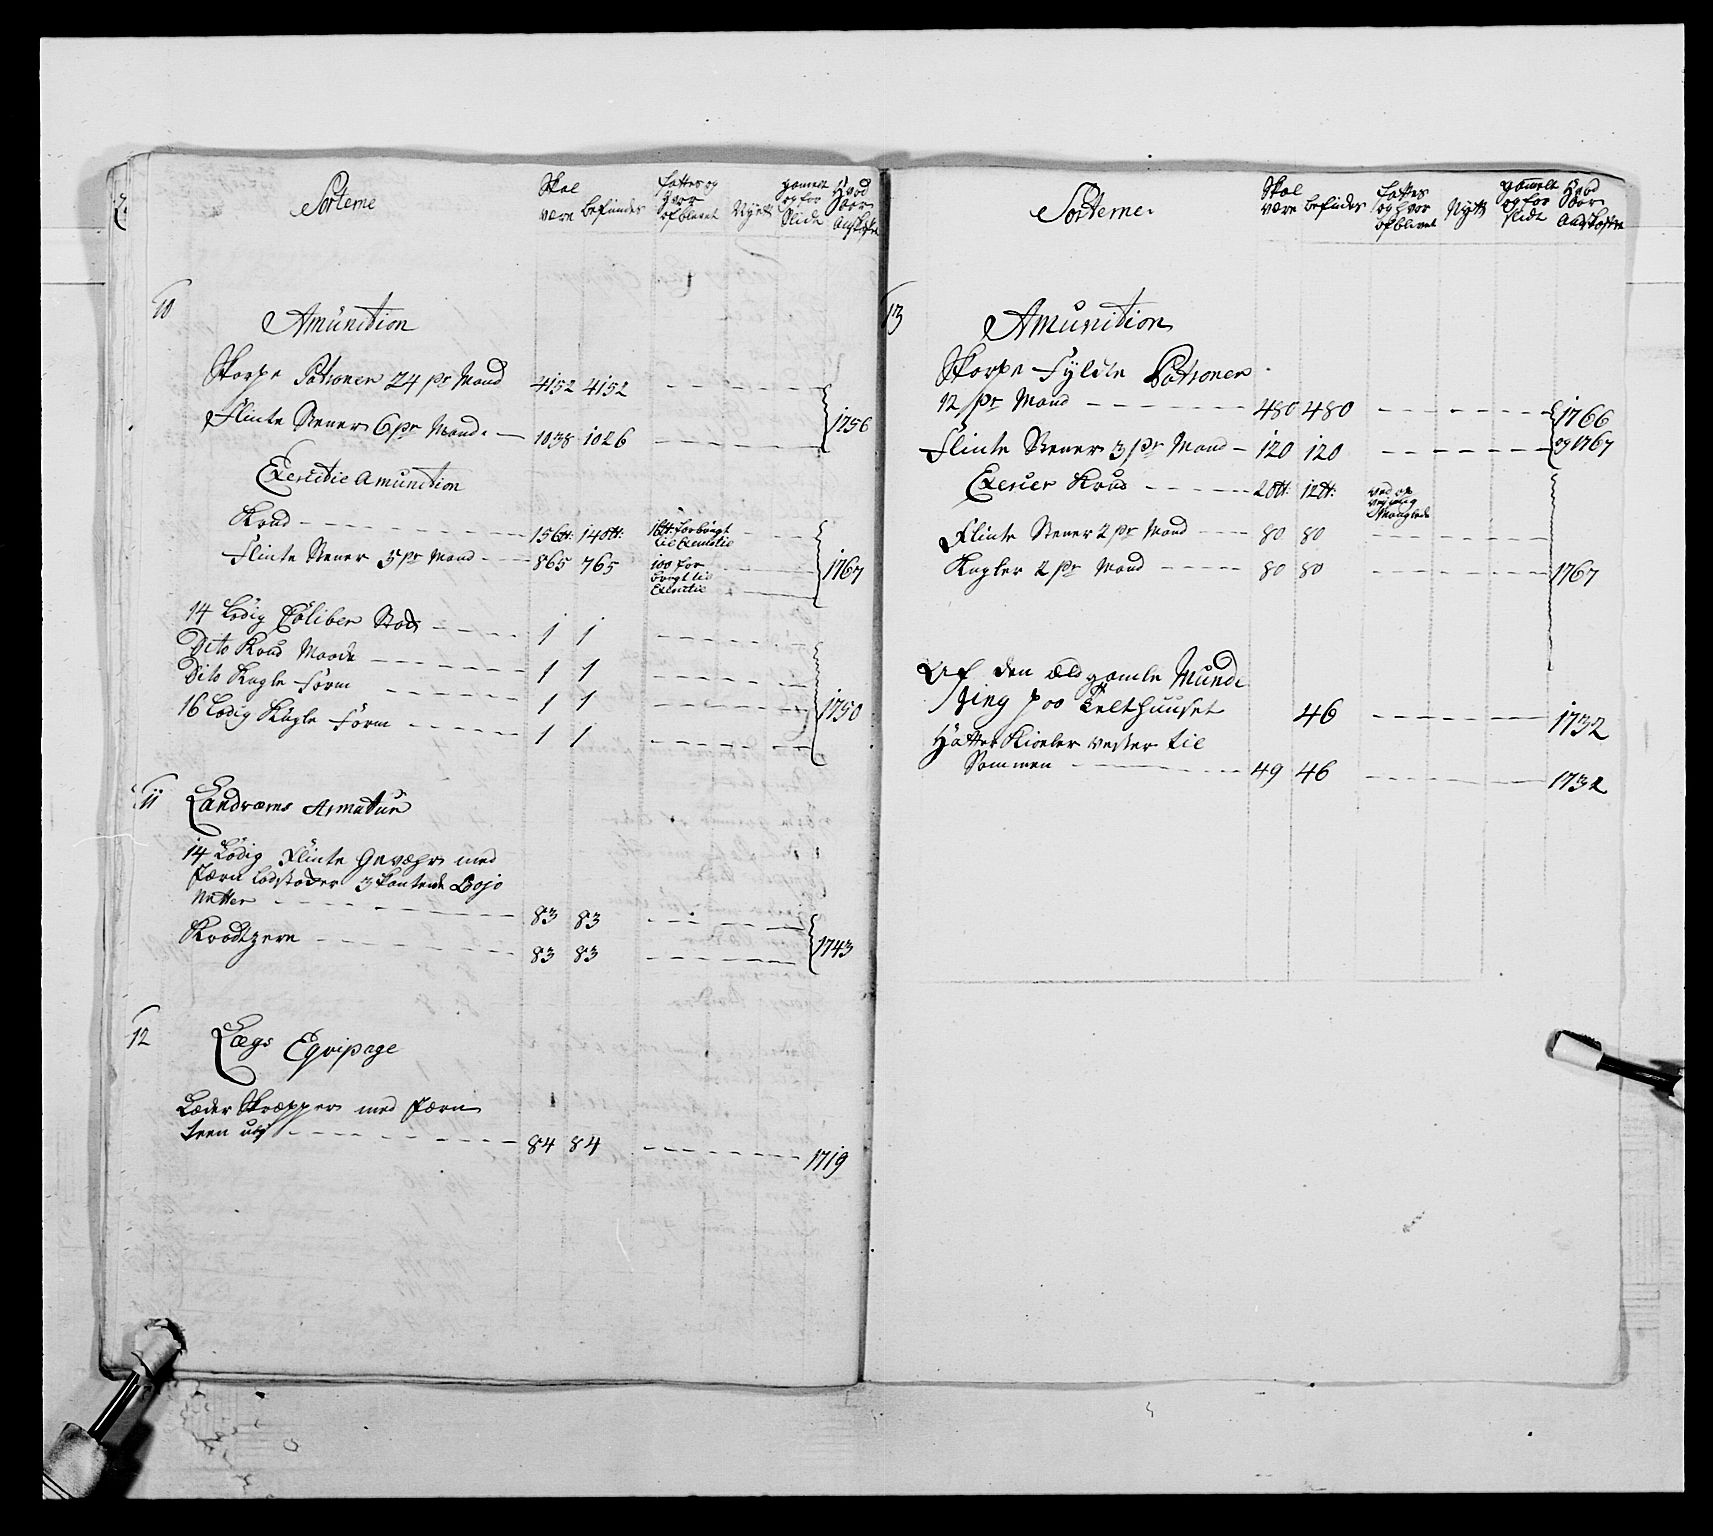 Sorterne
Skal være
befindes
fattes og hvor afblevet
Nÿtt
gamelt og forslidt
Hvad Aar anskaffet
10
Amünition
Skarpe Patroner 24 pr Mand 4152 4152
1756
Flinte Stener 6 pr Mand 1038 1026
Exercitie Amunition
Krud 156 ℔: 140 ℔: 16 ℔ forbrugt til Exercitie
Flinte Stener 5 pr Mand 865 765 100 forbrugt til Exercitie
1767
14 Lødig Caliber Stok 1 1
Dito Krud Maade 1 1
Dito Kugle form 1 1
1750
16 Lødig Kugle form 1 1
11
Landværns Armatur
14 Lødig Flinte Gevæhr med
Jærn Ladstoder 3 kantede Bajo
netter 83 83
1743
Kradtzere 83 83
12
Lægs Eqvipage
Læder Skræpper med Jærn
teen udj 84 84 1719
Sorterne
Skal være
befindes
fattes og hvor afblevet
Nÿtt
gammelt og forslidt
Hvad Aar Anskaffet
13
Amunition
Skarpe Fyldte Patroner
12 pr Mand 480 480
1766
og 1767
Flinte Stener 3 pr Mand 120 120
Exercer Krud 20 ℔: 12 ℔:
Flinte Stener 2 pr Mand 80 80
Kugler 2 pr Mand 80 80 1767
Af den Eldgamle Munde
ring paa Telthuuset 46 1732
Hatter Kioeler vester til
Sammen 49 46 1732